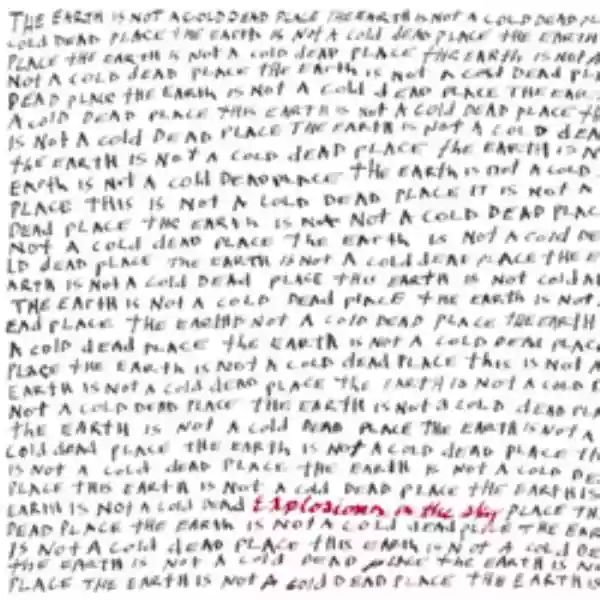 THE EARTH IS NOT A COLD DEAD PLACE THE EARTH IS NOT A COLD DEAD PL
COLD DEAD PLACE THE EARTH IS NOT A COLD DEAD PLACE THE EARTH
PLACE THE EARTH IS NOT A COLD DEAD PLACE THE EARTH IS NOT A
NOT A COLD DEAD PLACE THE EARTH IS NOT A COLD DEAD PL
DEAD PLACE THE EARTH IS NOT A COLD DEAD PLACE THE EAR
A COLD DEAD PLACE THIS EARTH IS NOT A COLD DEAD PLACE TH
IS NOT A cold DEAD PLACE THE EARTH IS NOT A COLD DEA
THE EARTH IS NOT A COLD DEAD PLACE THE EARTH IS N
EARTH IS NOT A COLD DEAD PLACE THE EARTH IS NOT A COLD
PLACE THIS IS NOT A COLD DEAD PLACE IT IS NOT A
DEAD PLACE THE EARTH IS NOT A COLD DEAD PLAC
NOT A COLD DEAD PLACE THE EARTH IS NOT A COLD DE
LD DEAD PLACE THE EARTH IS NOT A COLD DEAD PLACE THE E
ARTH IS NOT A COLD DEAD PLACE THIS EARTH IS NOT COLD A
THE EARTH IS NOT A COLD DEAD PLACE THE EARTH IS NOT
EAD PLACE THE EARTH IS NOT A COLD DEAD PLACE THE EARTH
A COLD DEAD PLACE THE EARTH IS NOT A COLD DEAD PLAC
PLACE THE EARTH IS NOT A COLD DEAD PLACE THIS IS NOT A
EARTH IS NOT A COLD DEAD PLACE THE EARTH IS NOT A COLD
NOT A COLD DEAD PLACE THE EARTH IS NOT A COLD DEAD PLA
THE EARTH IS NOT A COLD DEAD PLACE THE EARTH IS NOT A
COLD DEAD PLACE THE EARTH IS NOT A COLD DEAD PLACE TH
IS NOT A COLD DEAD PLACE THE EARTH IS NOT A COLD DE
PLACE THIS EARTH IS NOT A COLD DEAD PLACE THE EARTH IS
EARTH IS NOT A COLD DEAD Explosions in the sky PLACE TH
DEAD PLACE THE EARTH IS NOT A COLD DEAD PLACE THE EAR
IS NOT A COLD DEAD PLACE THIS EARTH IS NOT A COLD DE
THE EARTH IS NOT A COLD DEAD PLACE THE EARTH IS NO
PLACE THE EARTH IS NOT A COLD DEAD PLACE THE EARTH IS